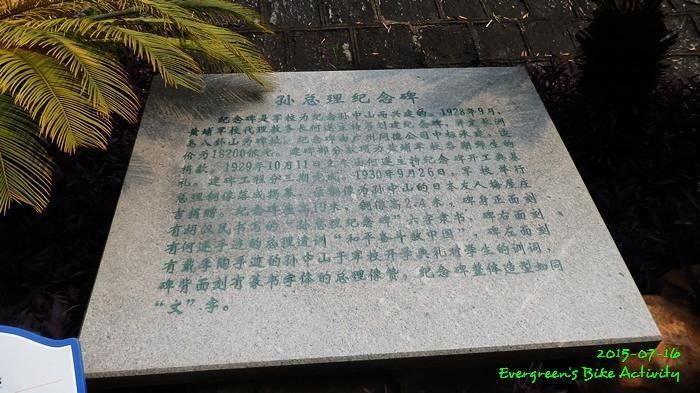 孙总理纪念碑
纪念碑是军校为纪念孙中山而兴建的。1928年9月,
黄埔军校代理教务长何遂主持筹划建纪念碑,并选长洲
岛八卦山为碑址。纪念碑由广州同建公司中标承建,造
价为18200银元。建碑部分款项为黄埔军校各期师生的
捐款。1929年10月11日上午由何遂主持纪念碑开工典基
礼。建碑工程分三期完成。1930年9月26日,军校举行
总理铜像落成揭幕,总理铜像为孙中山的日本友人梅屋庄
吉捐赠。纪念碑整高40米,铜像高2.4米,碑身正面刻
有胡汉民书写的"孙总理纪念碑"六字隶书,碑右面刻
有何遂手迹的总理遗训"和平奋斗救中国",碑左面刻
有戴季陶手迹的孙中山于军校开学典礼对学生的训词,
碑背面刻有篆书字体的总理像赞。纪念碑整体造型如同
"文"字。
2015-07-16
Evergreen's Bike Activity